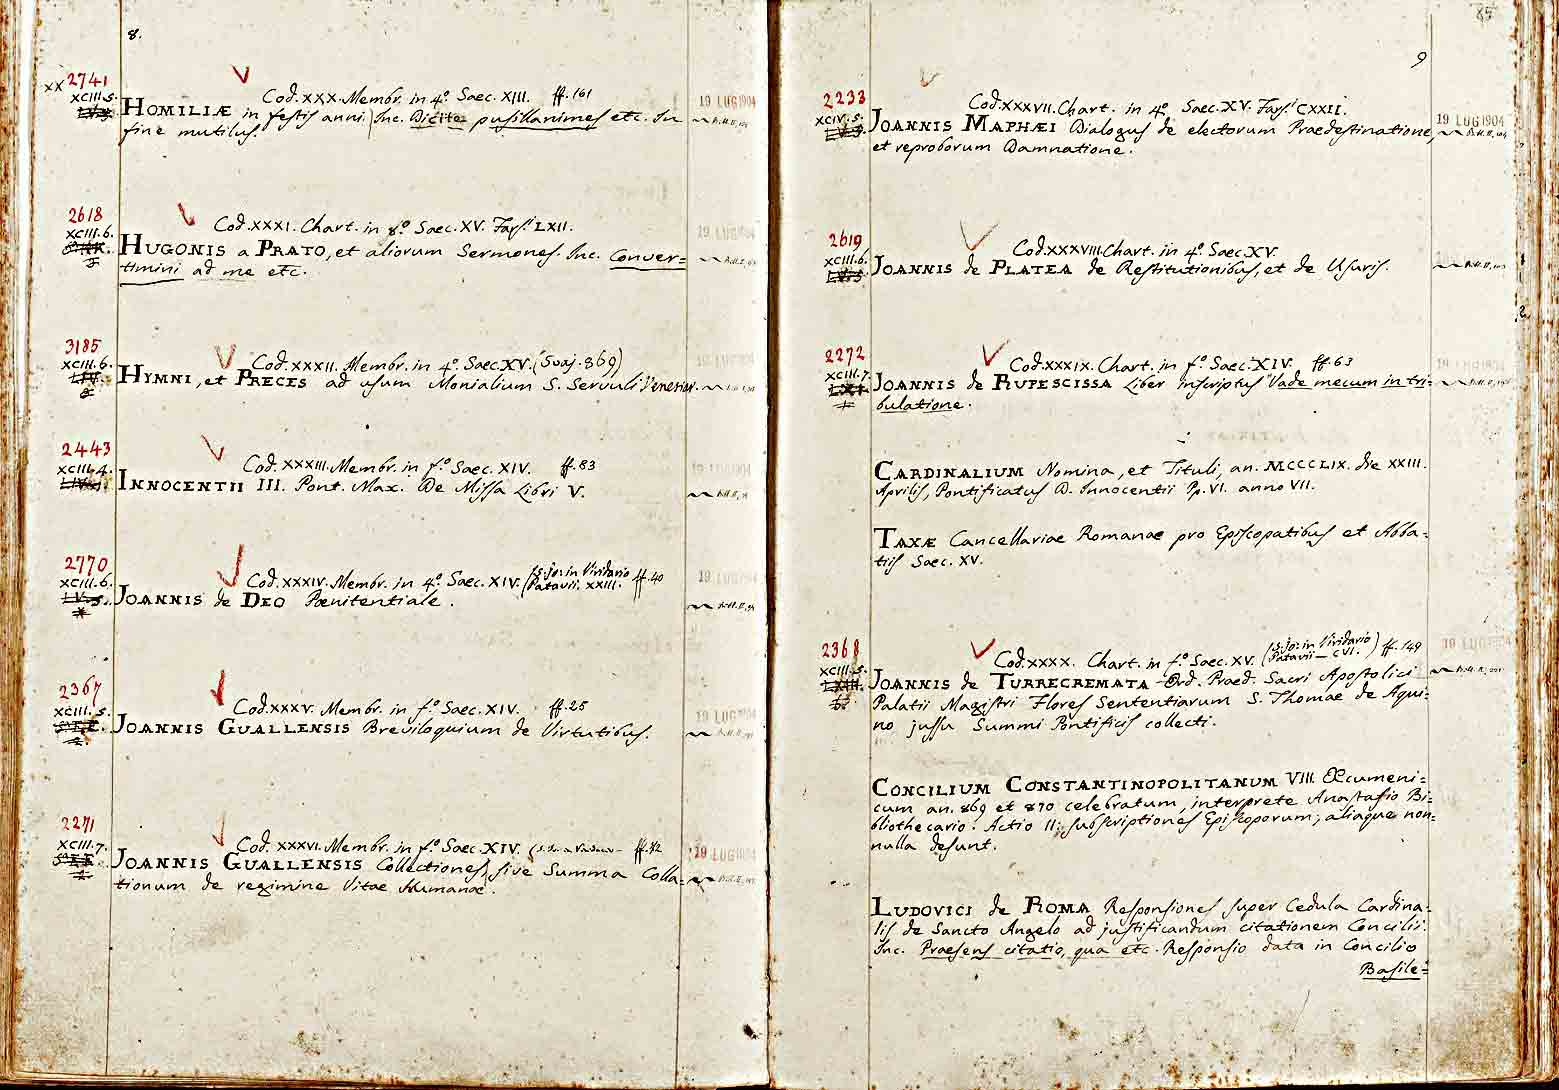 8.
xx 2741
XCIII. 5.
Cod. XXX. Membr. in 4.º Saec. XIII. ff. 161
19 LUG 1904
HOMILIÆ in festis anni Inc. Dicite pusillanimes etc. In
fine mutilus.
2618
XCIII. 6.
Cod. XXXI. Chart. in 8.º Saec. XV. Fars.i LXII.
19 LUG 1904
HUGONIS a PRATO, et aliorum Sermones. Inc. Conver=
timini ad me etc.
3185
XCIII. 6.
Cod. XXXII. Membr. in 4.º Saec. XV. (Svaj. 869)
19 LUG 1904
HYMNI, et PRECES ad usum Monialium S. Servuli Venetiar.
2443
XCIII. 4.
Cod. XXXIII. Membr. in f.º Saec. XIV. ff. 83
19 LUG 1904
INNOCENTII III. Pont. Max. De Missa Libri V.
2770
XCIII. 6.
Cod. XXXIV. Membr. in 4.º Saec. XIV. (S. Jo: in Viridario
Patavii. XXIII. ff. 40
19 LUG 1904
JOANNIS de DEO Pœnitentiale.
2367
XCIII. 5.
Cod. XXXV. Membr. in f.º Saec. XIV. ff. 25
19 LUG 1904
JOANNIS GUALLENSIS Breviloquium de Virtutibus.
2271
XCIII. 7.
Cod. XXXVI. Membr. in f.º Saec. XIV. ff. 72
19 LUG 1904
JOANNIS GUALLENSIS Collectiones, sive Summa Colla=
tionum de regimine Vitae Humanae.
85
9
2233
XCIV. 5.
Cod. XXXVII. Chart. in 4.º Saec. XV. Fars.i CXXII.
19 LUG 1904
JOANNIS MAPHÆI Dialogus de electorum Praedestinatione,
et reproborum Damnatione.
2619
XCIII. 6.
Cod. XXXVIII. Chart. in 4.º Saec. XV.
19 LUG 1904
JOANNIS de PLATEA de Restitutionibus, et de Usuris.
2272
XCIII. 7.
Cod. XXXIX. Chart. in f.º Saec. XIV. ff. 63
19 LUG 1904
JOANNIS de RUPESCISSA Liber inscriptus Vade mecum in tri=
bulatione.
CARDINALIUM Nomina, et Tituli, an. MCCCLIX. die XXIII.
Aprilis, Pontificatus D. Innocentii Pp. VI. anno VII.
TAXÆ Cancellariae Romanae pro Episcopatibus et Abba=
tiis Saec. XV.
2368
XCIII. 5.
Cod. XXXX. Chart. in f.º Saec. XV. (S. Jo: in Viridario
Patavii — CVI.) ff. 149
19 LUG 1904
JOANNIS de TURRECREMATA Ord. Praed. Sacri Apostolici
Palatii Magistri Flores Sententiarum S. Thomae de Aqui=
no jussu Summi Pontificis collecti.
CONCILIUM CONSTANTINOPOLITANUM VIII. Œcumeni=
cum an. 869 et 870 celebratum, interprete Anastasio Bi=
bliothecario. Actio II; subscriptiones Episcoporum, aliaque non=
nulla desunt.
LUDOVICI de ROMA Responsiones super Cedula Cardina=
lis de Sancto Angelo ad justificandum citationem Concilii.
Inc. Praesens citatio, qua etc. Responsio data in Concilio
Basile=